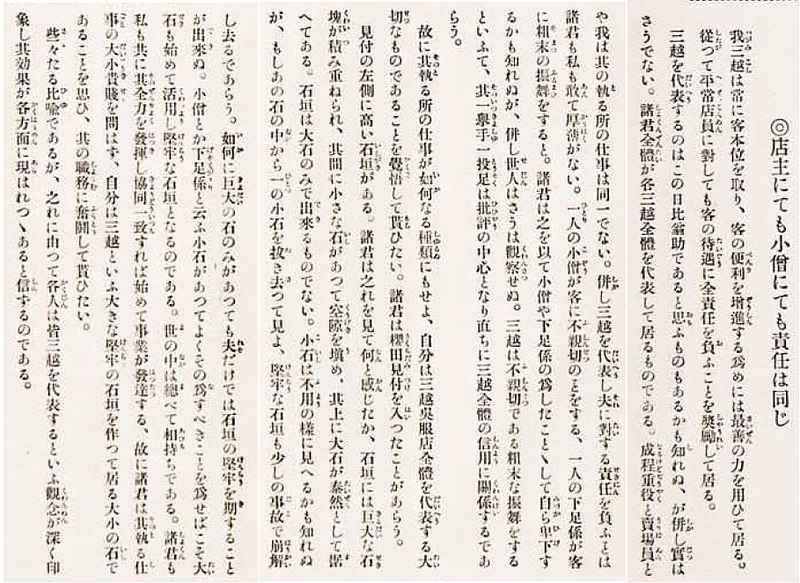 ◎店主にても小僧にても責任は同じ
我三越は常に客本位を取り、客の便利を增進する爲めには最善の力を用ひて居る。
從つて平常店員に對しても客の待遇に全責任を負ふことを奬勵して居る。
三越を代表するのはこの日比翁助であると思ふものもあるかも知れぬ、が併し實は
さうでない。諸君全體が各三越全體を代表して居るものである。成程重役と賣場員と
や我は其の執る所の仕事は同一でない。併し三越を代表し夫に對する責任を負ふとは
諸君も私も敢て厚薄がない。一人の小僧が客に不親切のことをする、一人の下足係が客
に粗末の振舞をすると。諸君は之を以て小僧や下足係の爲したことゝして自ら卑下す
るかも知れぬが、併し世人はさうは觀察せぬ。三越は不親切である粗末な振舞をする
といふて、其一擧手一投足は批評の中心となり直ちに三越全體の信用に關係するであ
らう。
故に其執る所の仕事が如何なる種類にもせよ、自分は三越吳服店全體を代表する大
切なものであることを覺悟して貰ひたい。諸君は櫻田見付を入つたことがあらう。
見付の左側に高い石垣がある。諸君は之れを見て何と感じたか、石垣には巨大な石
塊が積み重ねられ、其間に小さな石があつて空隙を塡め、其上に大石が泰然として据
へてある。石垣は大石のみで出來るものでない。小石は不用の樣に見へるかも知れぬ
が、もしあの石の中から一つの小石を拔き去つて見よ、堅牢な石垣も少しの事故で崩解
し去るであらう。如何に巨大の石のみがあつても夫だけでは石垣の堅牢を期すること
が出來ぬ。小僧とか下足係と云ふ小石があつてよくその爲すべきことを爲せばこそ大
石も始めて活用し堅牢な石垣となるのである。世の中は總べて相持ちである。諸君も
私も共に其全力を發揮し協同一致すれば始めて事業が發達する、故に諸君は其執る仕
事の大小貴賤を問はず、自分は三越といふ大きな堅牢の石垣を作つて居る大小の石で
あることを思ひ、其の職務に奮鬪して貰ひたい。
些々たる比喩であるが、之れに由つて各人は皆三越を代表するといふ觀念が深く印
象し其効果が各方面に現はれつゝあると信ずるのである。